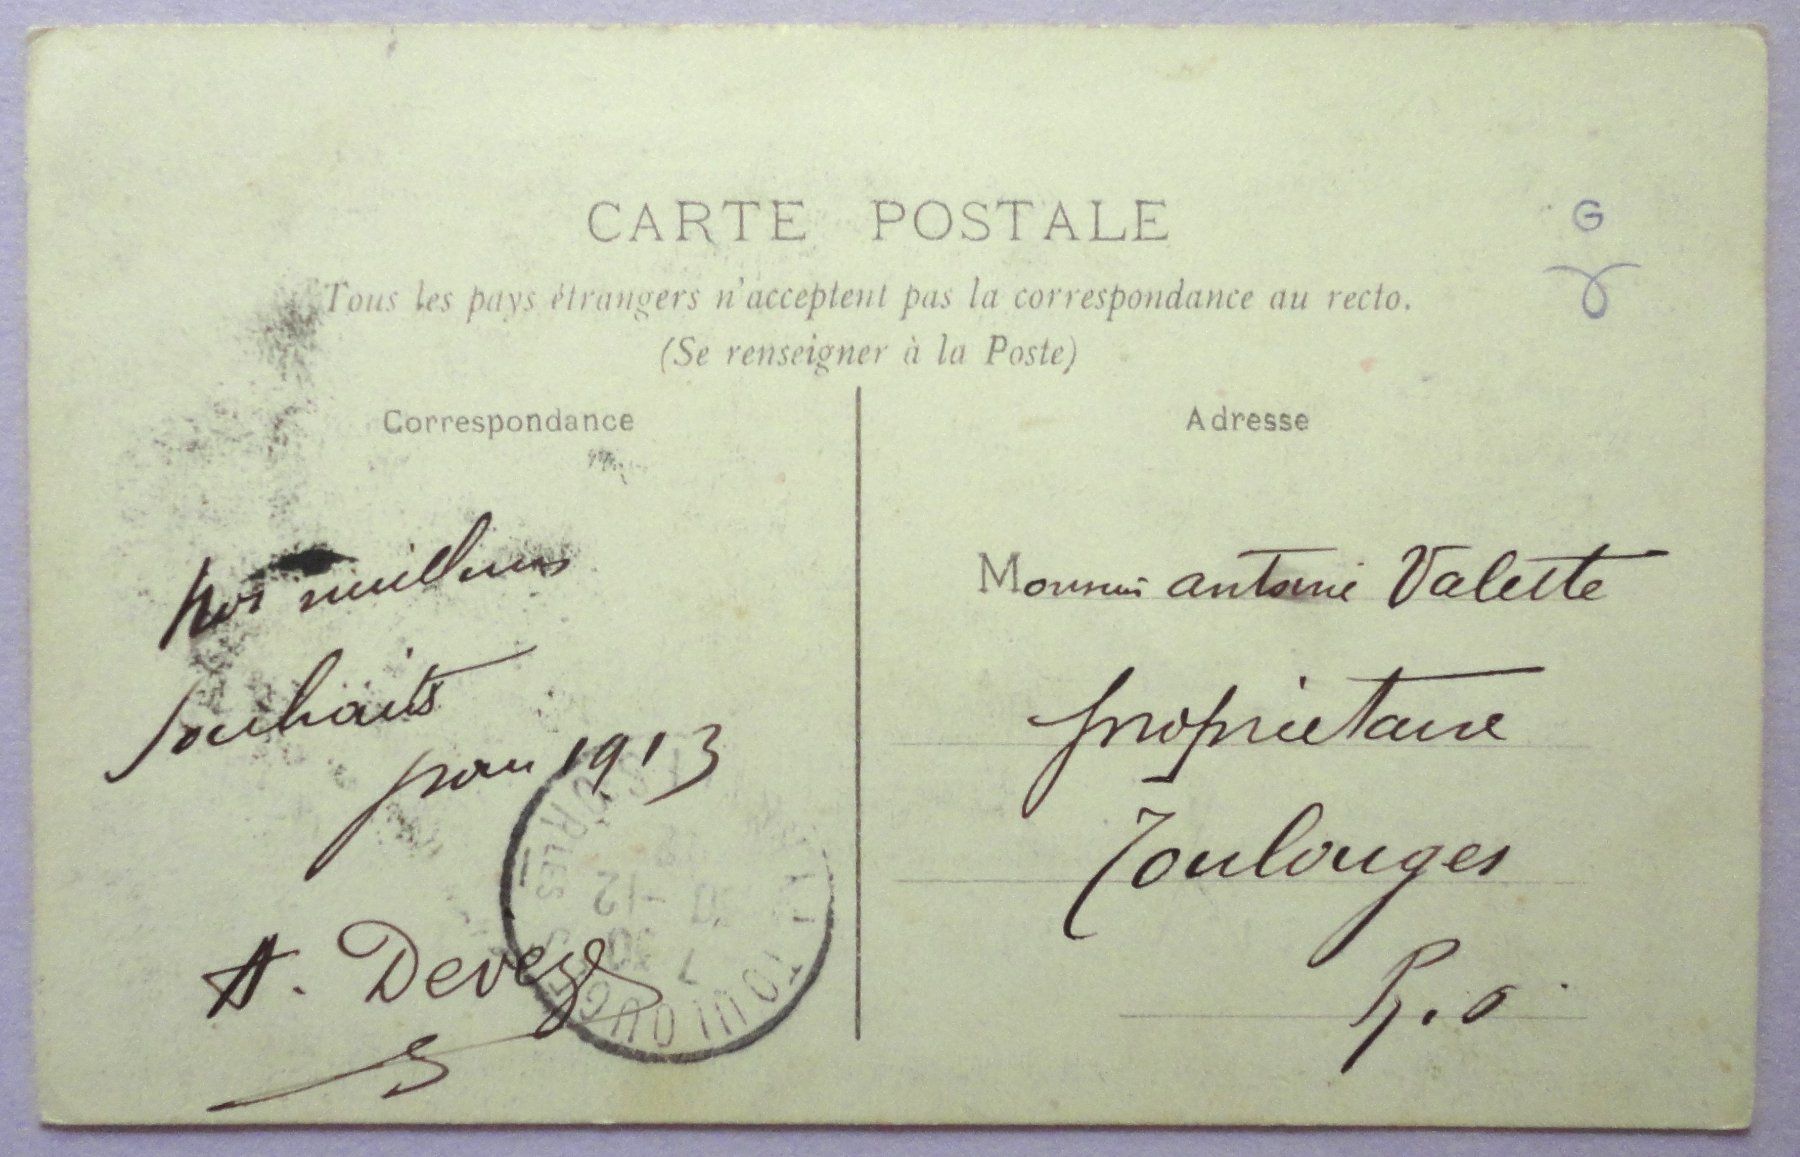 CARTE POSTALE
G
Tous les pays étrangers n'acceptent pas la correspondance au recto.
(Se renseigner à la Poste)
Correspondance
nos meilleurs
souhaits
pour 1913
A. Deveze
Adresse
Monsieur antoine Valette
propriétaire
Toulouges
P. O
TOULOUGES
30 -12